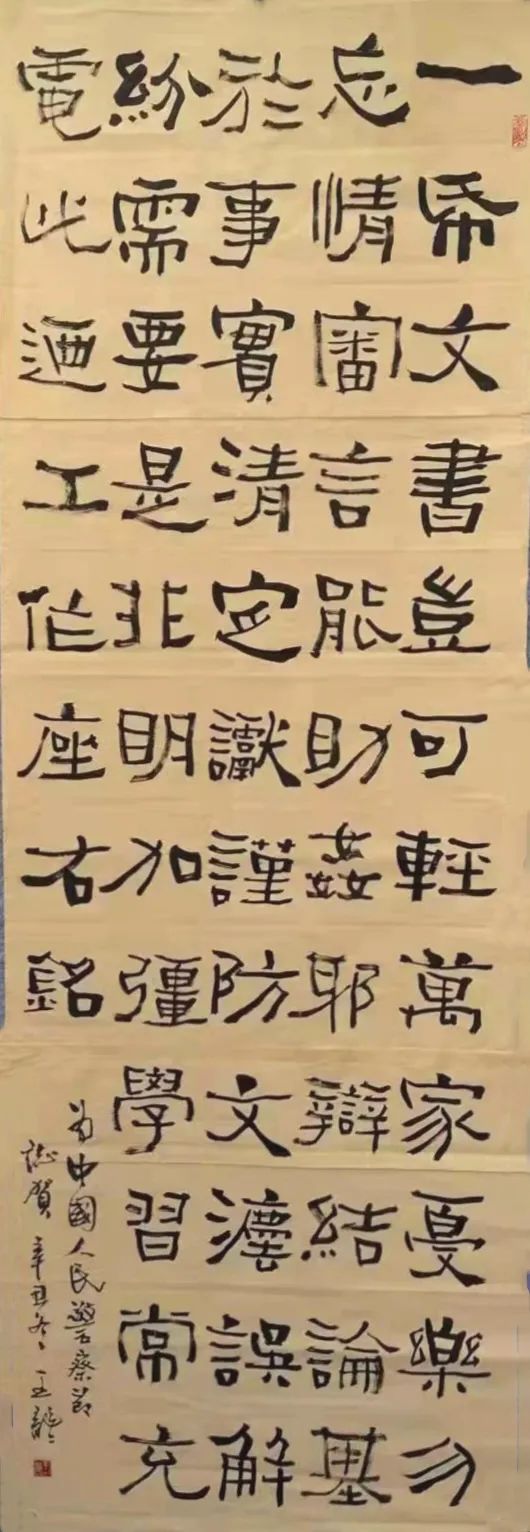 一帋文書豈可輕萬家憂樂勿
忘情審言能助姦耶辯結論基
於事實清定讞謹防文灋誤解
紛需要是非明加彊學習常充
電此迺工作座右銘
為中國人民警察節
誌賀 辛丑冬 王龍